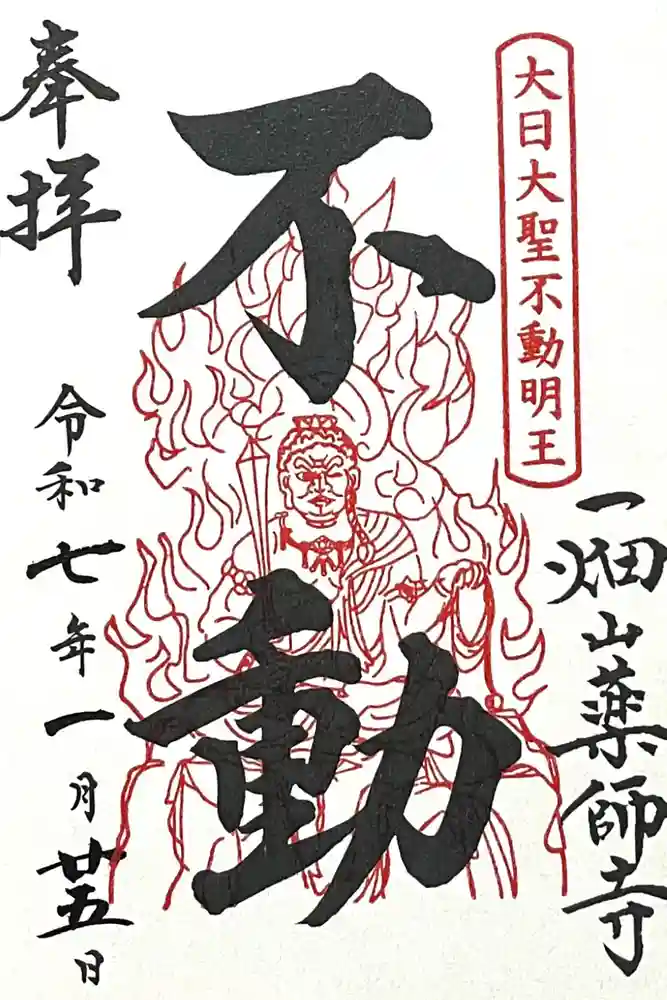 大日大聖不動明王
一畑山薬師寺
不動
奉拝
令和七年一月廿五日